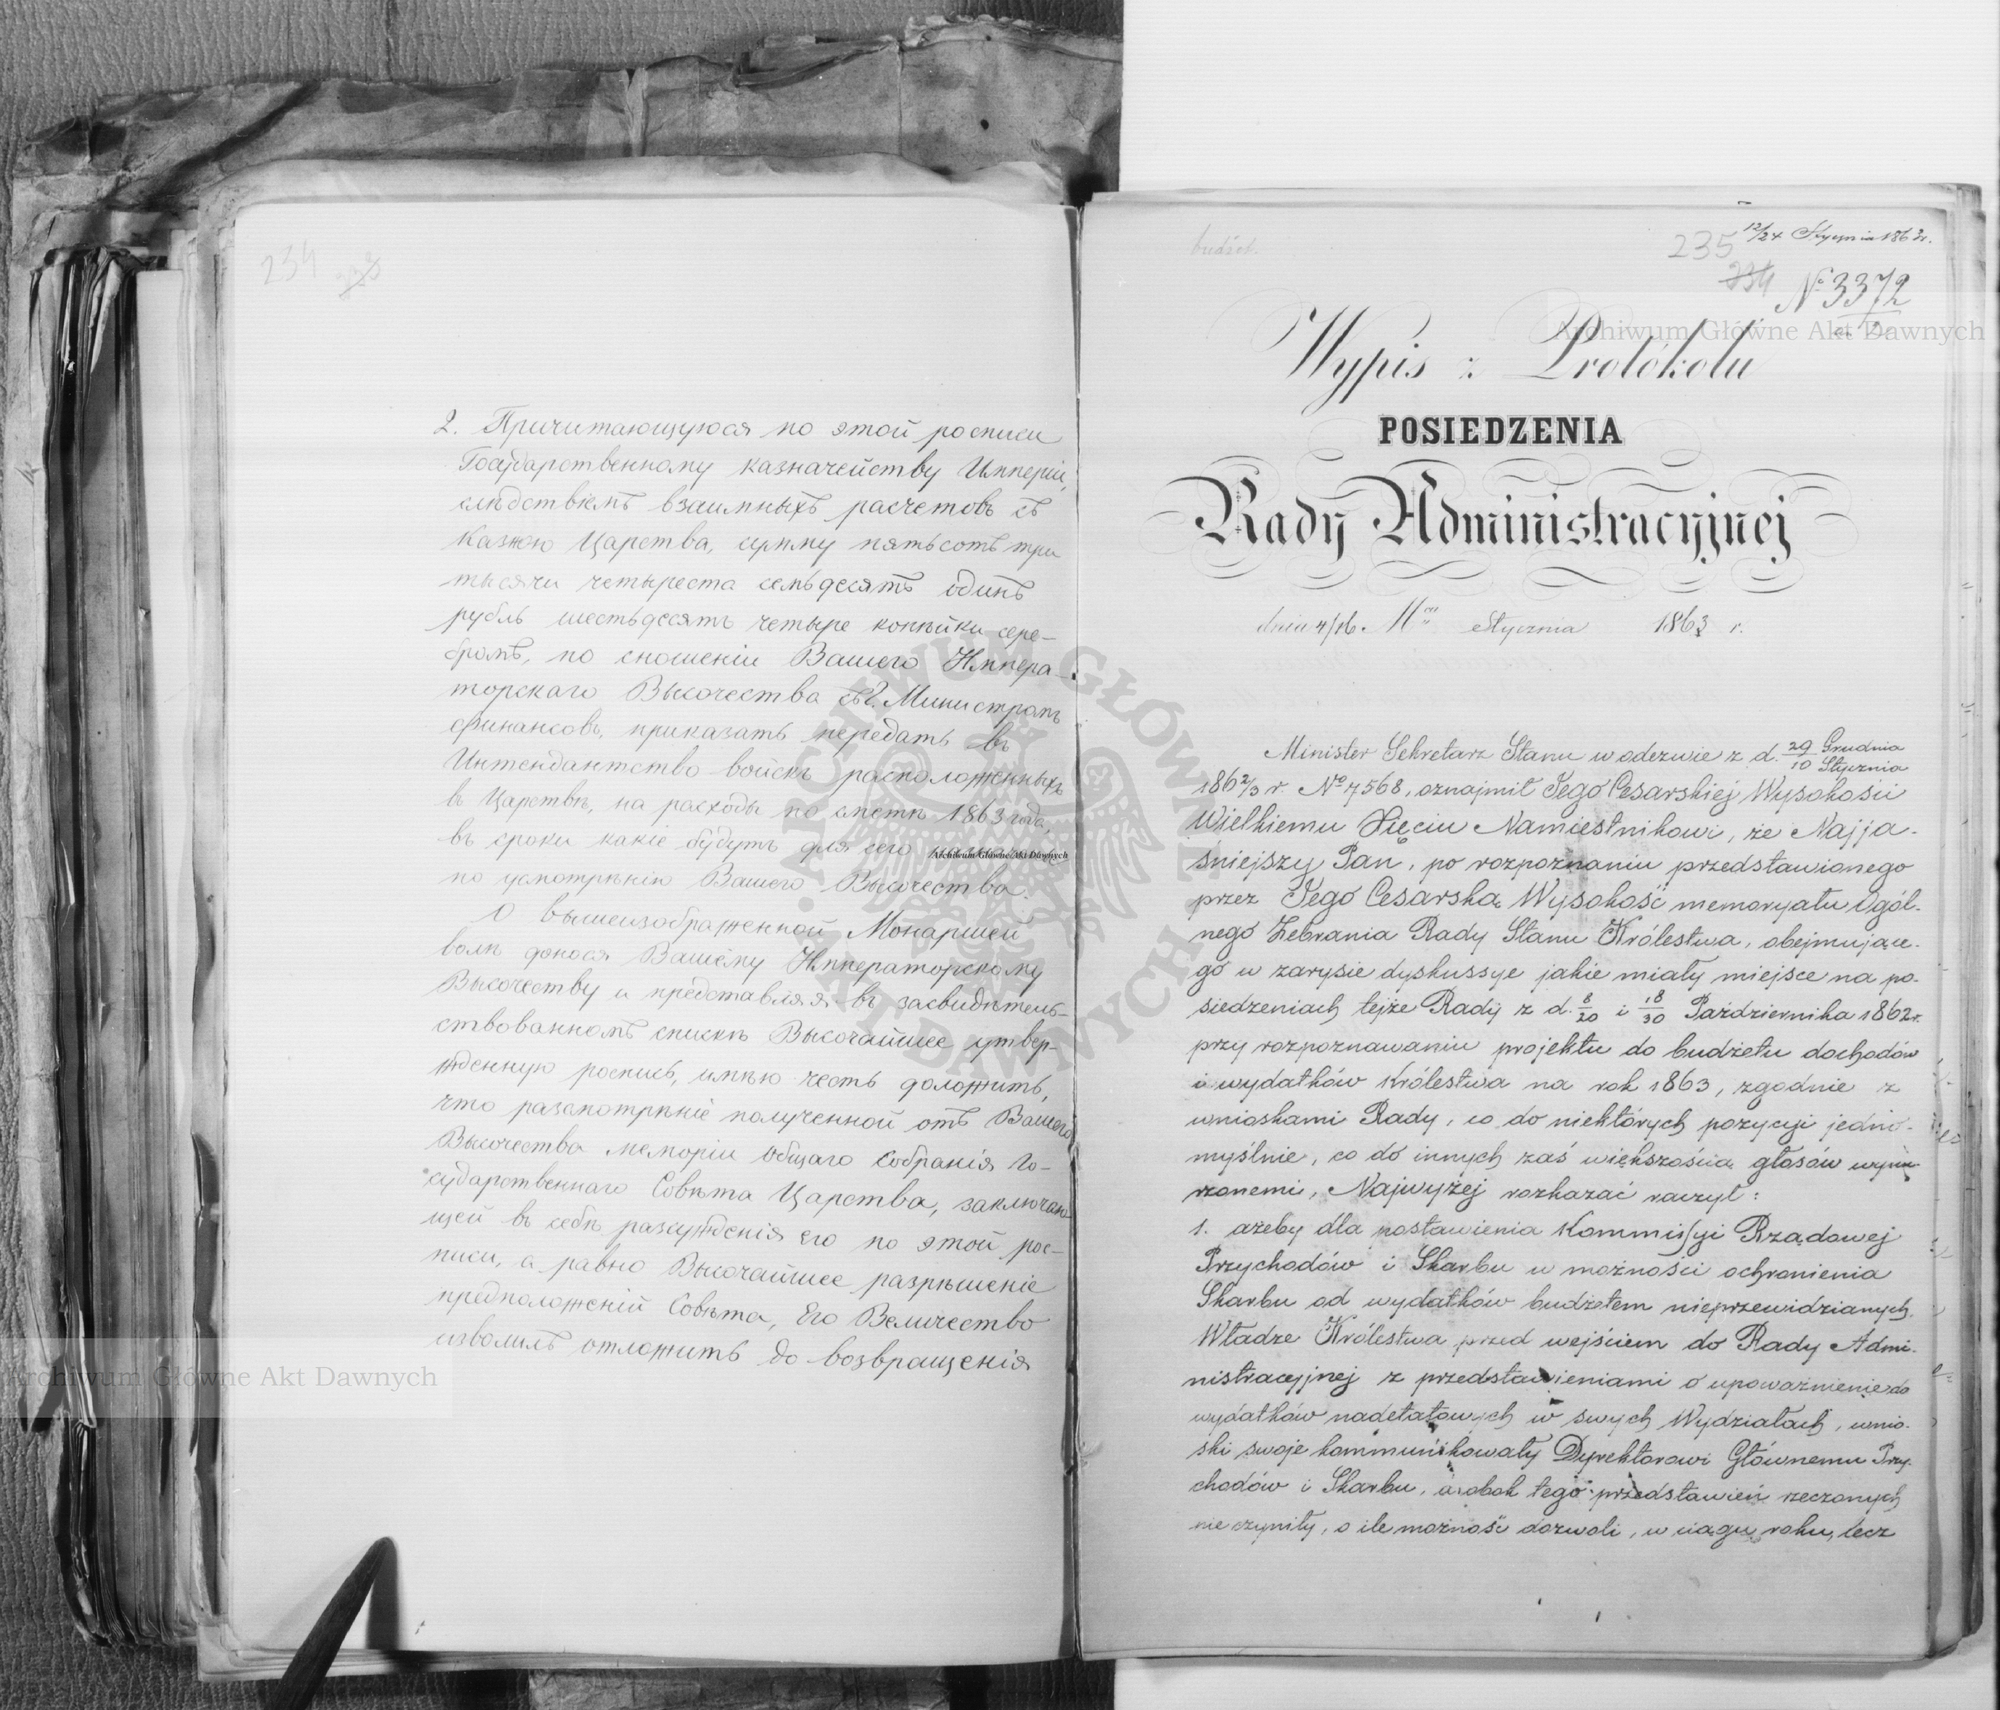 234
2. Причитающуюся по этой росписи
Государственному казначейству Имперіи,
слѣдствіемъ взаимныхъ расчетовъ съ
Казною Царства, сумму пятьсотъ три
тысячи четыреста семьдесятъ одинъ
рубль шестьдесятъ четыре копѣйки сере-
бромъ, по сношеніи Вашего Импера-
торскаго Высочества съ Г. Министромъ
финансовъ, приказать передать въ
Интендантство войскъ расположенныхъ
въ Царствѣ, на расходы по смѣтѣ 1863 года,
въ сроки какіе будутъ для сего назначены
по усмотрѣнію Вашего Высочества.
О вышеизображенной Монаршей
волѣ донося Вашему Императорскому
Высочеству и представляя въ засвидѣтель-
ствованномъ спискѣ Высочайше утвер-
жденную роспись, имѣю честь доложить,
что разсмотрѣніе полученной отъ Вашего
Высочества меморіи общаго собранія Го-
сударственнаго Совѣта Царства, заключаю-
щей въ себѣ разсужденія его по этой рос-
писи, а равно Высочайшее разрѣшеніе
предположеній Совѣта, Его Величество
изволилъ отложить до возвращенія
budżet.
12/24 Stycznia 1863 r.
235
234
№ 3372
Wypis z Protókółu
POSIEDZENIA
Rady Administracyjnej
dnia 4/16 Mca Stycznia 1863 r.
Minister Sekretarz Stanu w odezwie z d. 29 Grudnia / 10 Stycznia
1862/3 r. No 7568, oznajmił Jego Cesarskiej Wysokości
Wielkiemu Xięciu Namiestnikowi, że Najja-
śniejszy Pan, po rozpoznaniu przedstawionego
przez Jego Cesarską Wysokość memoryału Ogól-
nego Zebrania Rady Stanu Królestwa, obejmujące-
go w zarysie dyskussye jakie miały miejsce na po-
siedzeniach tejże Rady z d. 8/20 i 18/30 Października 1862 r.
przy rozpoznawaniu projektu do budżetu dochodów
i wydatków Królestwa na rok 1863, zgodnie z
wnioskami Rady, co do niektórych pozycyi jedno-
myślnie, co do innych zaś większością głosów wyrze-
rzonemi, Najwyżej rozkazać raczył:
1. ażeby dla postawienia Kommissyi Rządowej
Przychodów i Skarbu w możności ochronienia
Skarbu od wydatków budżetem nieprzewidzianych
Władze Królestwa przed wejściem do Rady Admi-
nistracyjnej z przedstawieniami o upoważnienie do
wydatków nadetatowych w swych Wydziałach, wnio-
ski swoje kommunikowały Dyrektorowi Głównemu Przy-
chodów i Skarbu, a obok tego przedstawień rzeczonych
nie czyniły, o ile możność dozwoli, w ciągu roku, lecz
Archiwum Główne Akt Dawnych
Archiwum Główne Akt Dawnych
Archiwum Główne Akt Dawnych
ARCHIWUM GŁÓWNE AKT DAWNYCH